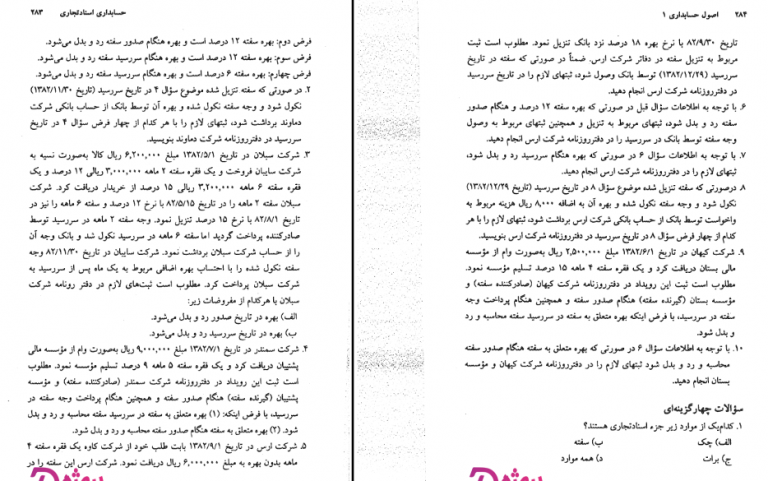 حسابداری اسنادتجاری ۲۸۳
فرض دوم: بهره سفته ۱۲ درصد است و بهره هنگام صدور سفته رد و بدل می‌شود.
فرض سوم: بهره سفته ۱۲ درصد است و بهره هنگام سررسید سفته رد و بدل می‌شود.
فرض چهارم: بهره سفته ۶ درصد است و بهره هنگام سررسید سفته رد و بدل می‌شود.
۲. در صورتی که سفته تنزیل شده موضوع سؤال ۴ در تاریخ سررسید (تاریخ ۱۳۸۲/۱۱/۳۰)
نکول شود و وجه سفته نکول شده و بهره آن توسط بانک از حساب بانکی شرکت
دماوند برداشت شود، ثبتهای لازم را با هر کدام از چهار فرض سؤال ۴ در تاریخ
سررسید در دفترروزنامه شرکت دماوند بنویسید.
۳. شرکت سبلان در تاریخ ۱۳۸۲/۵/۱ مبلغ ۶,۲۰۰,۰۰۰ ریال کالا به‌صورت نسیه به
شرکت سایبان فروخت و یک فقره سفته ۲ ماهه ۳,۰۰۰,۰۰۰ ریالی ۱۲ درصد و یک
فقره سفته ۶ ماهه ۳,۲۰۰,۰۰۰ ریالی ۱۵ درصد از خریدار دریافت کرد. شرکت
سبلان سفته ۲ ماهه را در تاریخ ۸۲/۵/۱۵ با نرخ ۱۲ درصد و سفته ۶ ماهه را نیز در
تاریخ ۸۲/۸/۱ با نرخ ۱۵ درصد تنزیل نمود. وجه سفته ۲ ماهه در سررسید توسط
صادرکننده پرداخت گردید اما سفته ۶ ماهه در سررسید نکول شد و بانک وجه آن
را از حساب شرکت سبلان برداشت نمود. شرکت سایبان در تاریخ ۸۲/۱۱/۳۰ وجه
سفته نکول شده را با احتساب بهره اضافی مربوط به یک ماه پس از سررسید به
شرکت سبلان پرداخت کرد. مطلوب است ثبت‌های لازم در دفتر رونامه شرکت
سبلان با هرکدام از مفروضات زیر:
الف) بهره در تاریخ صدور رد و بدل می‌شود.
ب) بهره در تاریخ سررسید رد و بدل می‌شود.
۴. شرکت سمندر در تاریخ ۱۳۸۲/۷/۱ مبلغ ۹,۰۰۰,۰۰۰ ریال به‌صورت وام از مؤسسه مالی
پشتیبان دریافت کرد و یک فقره سفته ۵ ماهه ۹ درصد تسلیم مؤسسه نمود. مطلوب
است ثبت این رویداد در دفترروزنامه شرکت سمندر (صادرکننده سفته) و مؤسسه
پشتیبان (گیرنده سفته) هنگام صدور سفته و همچنین هنگام پرداخت وجه سفته در
سررسید، با فرض اینکه: (۱) بهره متعلق به سفته در سررسید سفته محاسبه و رد و بدل
شود. (۲) بهره متعلق به سفته هنگام صدور سفته محاسبه و رد و بدل شود.
۵. شرکت ارس در تاریخ ۱۳۸۲/۹/۱ بابت طلب خود از شرکت کاوه یک فقره سفته ۴
ماهه بدون بهره به مبلغ ۶,۰۰۰,۰۰۰ ریال دریافت نمود. شرکت ارس این سفته را در
۲۸۴ اصول حسابداری ۱
تاریخ ۸۲/۹/۳۰ با نرخ بهره ۱۸ درصد نزد بانک تنزیل نمود. مطلوب است ثبت
مربوط به تنزیل سفته در دفاتر شرکت ارس. ضمناً در صورتی که سفته در تاریخ
سررسید (۱۳۸۲/۱۲/۲۹) توسط بانک وصول شود، ثبتهای لازم را در تاریخ سررسید
در دفترروزنامه شرکت ارس انجام دهید.
۶. با توجه به اطلاعات سؤال قبل در صورتی که بهره سفته ۱۲ درصد و هنگام صدور
سفته رد و بدل شود، ثبتهای مربوط به تنزیل و همچنین ثبتهای مربوط به وصول
وجه سفته توسط بانک در سررسید را در دفترروزنامه شرکت ارس انجام دهید.
۷. با توجه به اطلاعات سؤال ۶ در صورتی که بهره هنگام سررسید رد و بدل شود،
ثبتهای لازم را در دفترروزنامه شرکت ارس انجام دهید.
۸. درصورتی که سفته تنزیل شده موضوع سؤال ۸ در تاریخ سررسید (تاریخ ۱۳۸۲/۱۲/۲۹)
نکول شود و وجه سفته نکول شده و بهره آن به اضافه ۸,۰۰۰ ریال هزینه مربوط به
واخواست توسط بانک از حساب بانکی شرکت ارس برداشت شود، ثبتهای لازم را با هر
کدام از چهار فرض سؤال ۸ در تاریخ سررسید در دفترروزنامه شرکت ارس بنویسید.
۹. شرکت کیهان در تاریخ ۱۳۸۲/۶/۱ مبلغ ۲,۵۰۰,۰۰۰ ریال به‌صورت وام از مؤسسه
مالی بستان دریافت کرد و یک فقره سفته ۴ ماهه ۱۵ درصد تسلیم مؤسسه نمود.
مطلوب است ثبت این رویداد در دفترروزنامه شرکت کیهان (صادرکننده سفته) و
مؤسسه بستان (گیرنده سفته) هنگام صدور سفته و همچنین هنگام پرداخت وجه
سفته در سررسید، با فرض اینکه بهره متعلق به سفته در سررسید سفته محاسبه و رد
و بدل شود.
۱۰. با توجه به اطلاعات سؤال ۶ در صورتی که بهره متعلق به سفته هنگام صدور سفته
محاسبه و رد و بدل شود ثبتهای لازم را در دفترروزنامه شرکت کیهان و مؤسسه
بستان انجام دهید.
سؤالات چهارگزینه‌ای
۱. کدام‌یک از موارد زیر جزء اسنادتجاری هستند؟
الف) چک ب) سفته
ج) برات د) همه موارد